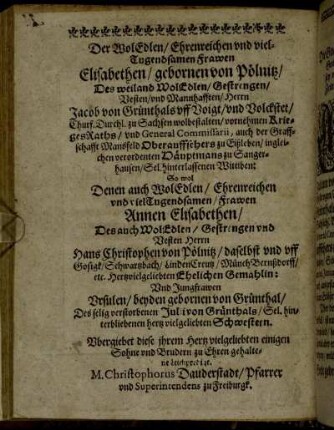 Der WolEdlen/ Ehrenreichen vnd viel-
Tugendsamen Frawen
Elisabethen/ gebornen von Pölnitz/
Des weiland WolEdlen/ Gestrengen/
Vesten/ vnd Mannhafften/ Herrn
Jacob von Grünthals vff Voigt/ vnd Volckstet/
Churf. Durchl. zu Sachsen wolbestalten/ vornehmen Krie-
gesRaths/ vnd General Commissarii, auch der Graff-
schafft Mansfeld Oberauffsehers zu Eißleben/ inglei-
chen verordenten Häuptmans zu Sanger-
hausen/ Sel. hinterlassenen Wittben:
So wol
Denen auch WolEdlen/ Ehrenreichen
vnd vielTugendsamen/ Frawen
Annen Elisabethen/
Des auch WolEdlen/ Gestrengen vnd
Vesten Herrn
Hans Christophen von Pölnitz/ daselbst vnd vff
Gosigk/ Schwartzbach/ LindenCreutz/ MünchBernsdorff/
etc. Hertzvielgeliebten Ehelichen Gemahlin:
Und Jungfrawen
Ursulen/ beyden gebornen von Grünthal/
Des selig verstorbenen Julii von Grünthals/ Sel. hin-
terbliebenen hertz vielgeliebten Schwestern.
Vbergiebet diese ihrem Hertz vielgeliebten einigen
Sohne vnd Brudern zu Ehren gehalte-
ne Leichpredigt.
M. Christophorus Dauderstadt/ Pfarrer
vnd Superintendens zu Freiburgk.